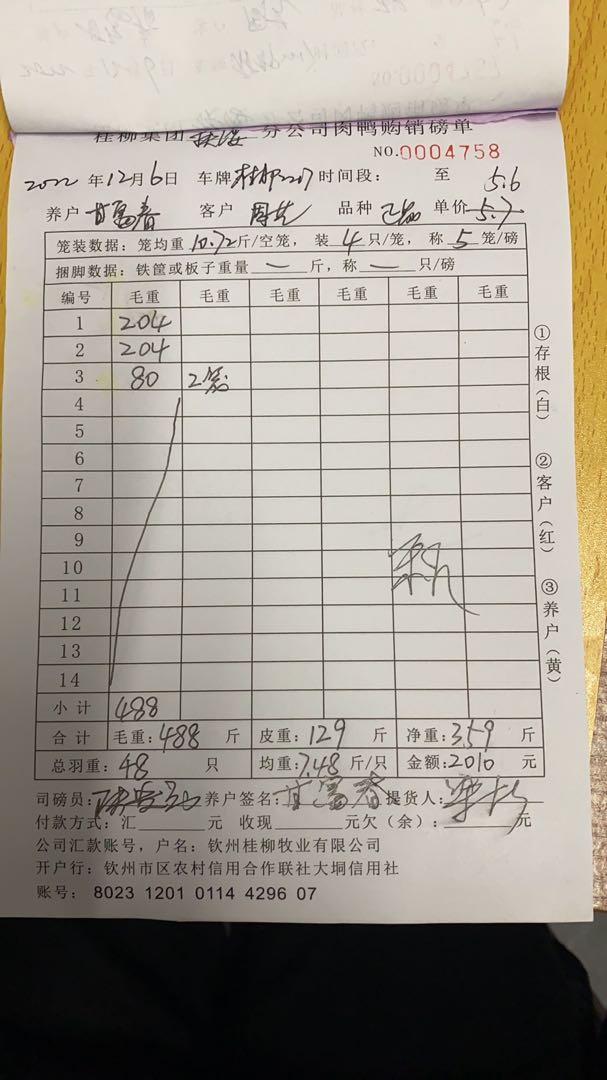 桂柳集团 分公司肉鸭购销磅单
NO.0004758
2022 年 12 月 6 日 车牌 桂柳2207 时间段: 至
5.6
养户 甘富春 客户 品种 单价 5.7
笼装数据: 笼均重 10.72 斤/空笼, 装 4 只/笼, 称 5 笼/磅
捆脚数据: 铁筐或板子重量 — 斤, 称 — 只/磅
编号 毛重 毛重 毛重 毛重 毛重 毛重
1 204
2 204
3 80 2笼
4
5
6
7
8
9
10
11
12
13
14
小计 488
合计 毛重: 488 斤 皮重: 129 斤 净重: 359 斤
总羽重: 48 只 均重: 7.48 斤/只 金额: 2010 元
司磅员: 养户签名: 甘富春 提货人:
付款方式: 汇 元 收现 元欠(余): 元
公司汇款账号, 户名: 钦州桂柳牧业有限公司
开户行: 钦州市区农村信用合作联社大垌信用社
账号: 8023 1201 0114 4296 07
①存根(白)
②客户(红)
③养户(黄)